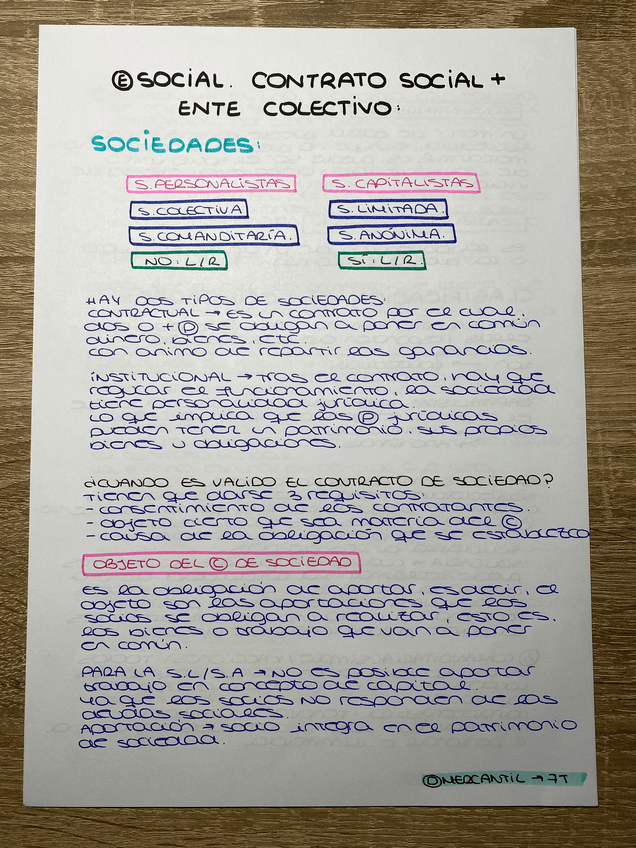 Ⓔ SOCIAL. CONTRATO SOCIAL +
ENTE COLECTIVO:
SOCIEDADES:
S. PERSONALISTAS S. CAPITALISTAS
S. COLECTIVA S. LIMITADA.
S. COMANDITARIA. S. ANÓNIMA.
NO: L/R SÍ: L/R.
HAY DOS TIPOS DE SOCIEDADES:
CONTRACTUAL → ES UN CONTRATO POR EL CUAL.
dos o + Ⓟ se obligan a poner en común
dinero, bienes, etc.
con animo de repartir las ganancias.
INSTITUCIONAL → Tras el contrato, hay que
regular el funcionamiento. La sociedad
tiene personalidad jurídica.
Lo que implica que las Ⓟ jurídicas
pueden tener un patrimonio, sus propios
bienes u obligaciones.
¿CUANDO ES VALIDO EL CONTRACTO DE SOCIEDAD?
Tienen que darse 3 requisitos:
- consentimiento de los contratantes.
- objeto cierto que sea materia del Ⓒ
- causa de la obligación que se establezca
OBJETO DEL Ⓒ DE SOCIEDAD
Es la obligación de aportar, es decir, el
objeto son las aportaciones que los
socios se obligan a realizar, esto es.
los bienes o trabajo que van a poner
en común.
PARA LA S.L/S.A → No es posible aportar
trabajo en concepto de capital.
ya que los socios NO responden de las
deudas sociales.
Aportación → socio integra en el patrimonio
de sociedad.
ⒹMERCANTIL → 7T